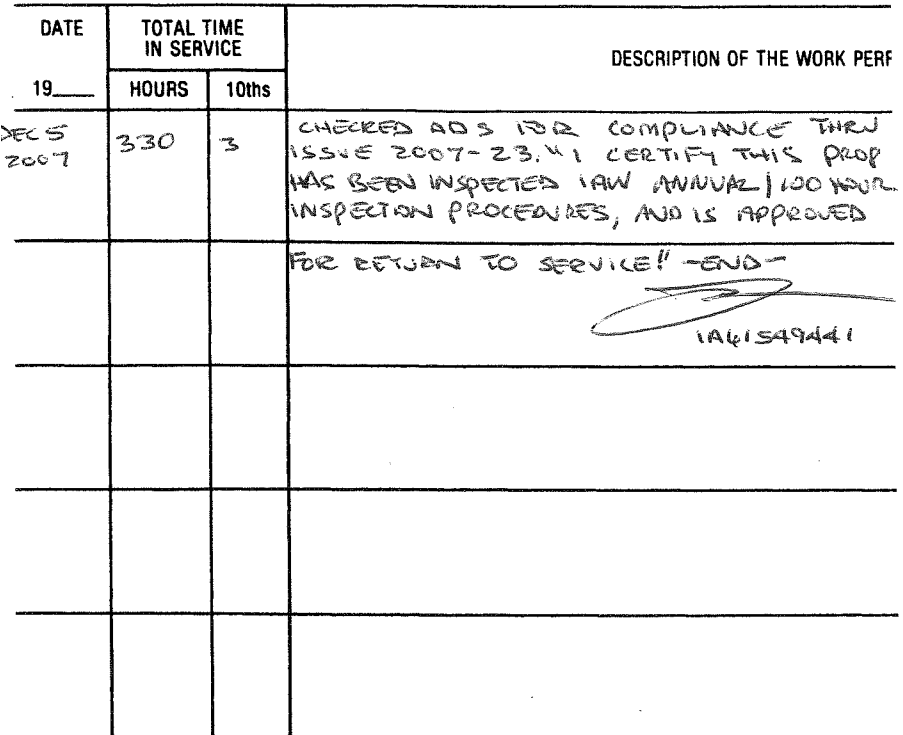 DATE
TOTAL TIME
IN SERVICE
DESCRIPTION OF THE WORK PERF
19
HOURS
10ths
DEC 5
2007
330
3
CHECKED ADS FOR COMPLIANCE THRU
ISSUE 2007-23. "I CERTIFY THIS PROP
HAS BEEN INSPECTED IAW ANNUAL/100 HOUR
INSPECTION PROCEDURES, AND IS APPROVED
FOR RETURN TO SERVICE!" -END-
IA61549441